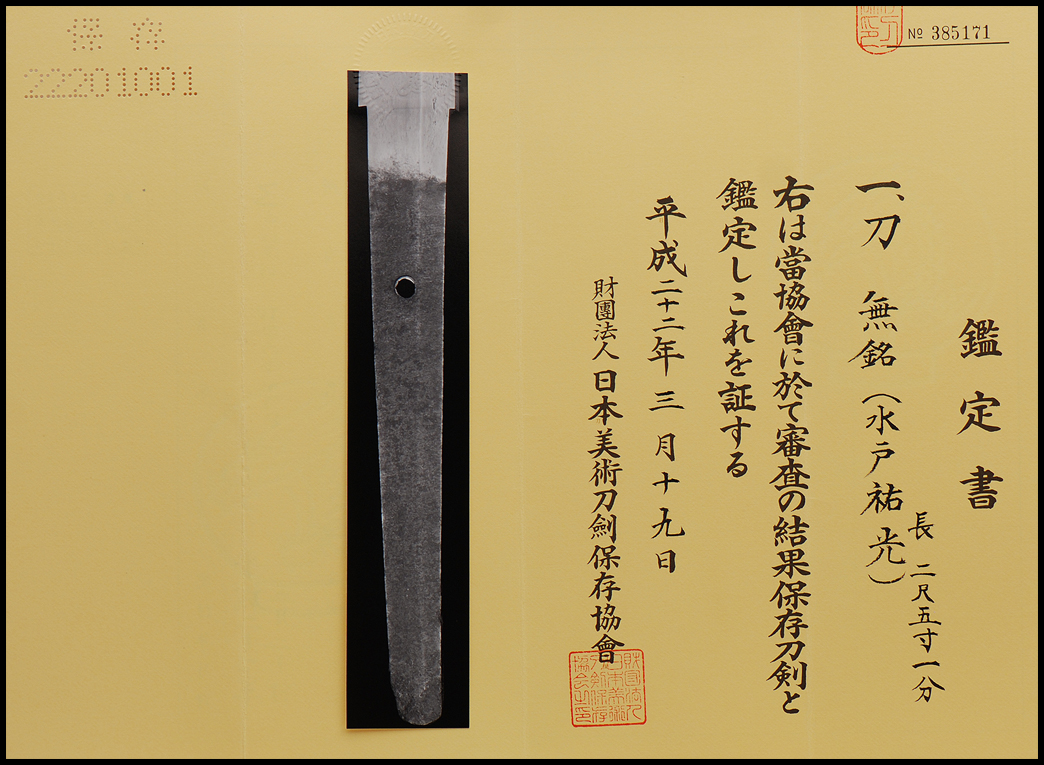 № 385171
鑑定書
一、刀 無銘(水戸祐光)
長 二尺五寸一分
右は當協會に於て審査の結果保存刀剣と
鑑定しこれを証する
平成二十二年三月十九日
財團法人 日本美術刀劍保存協會
保存
22201001